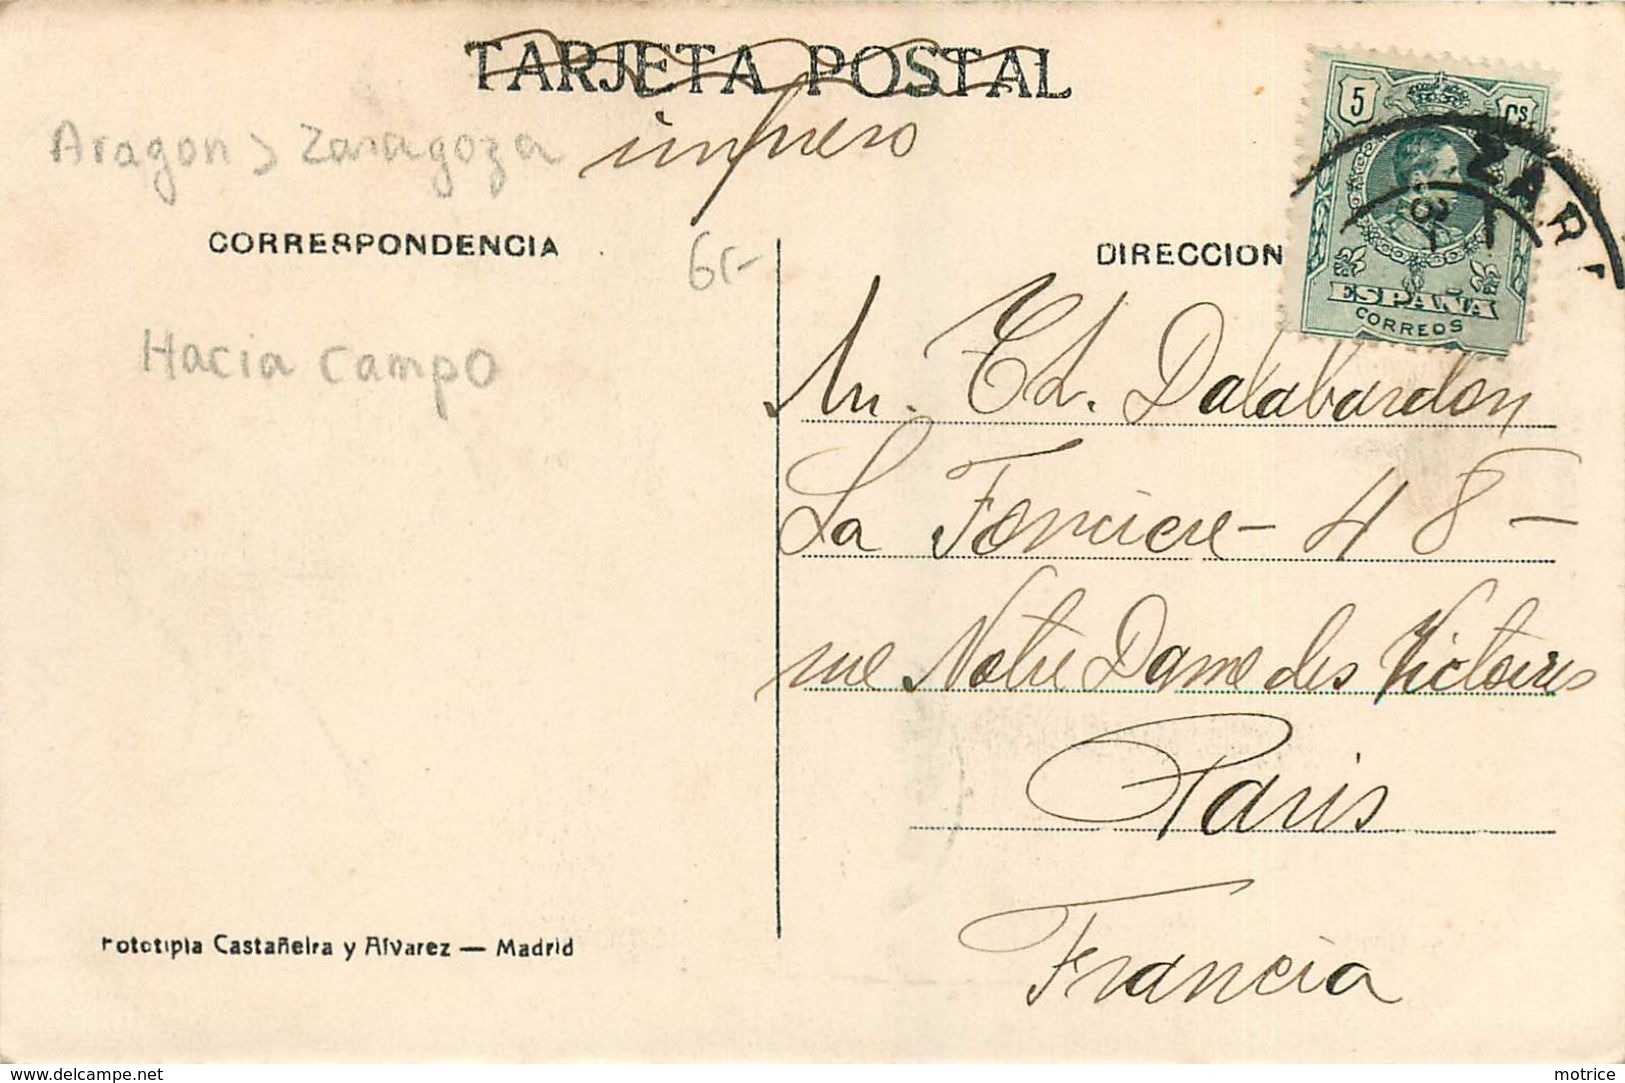 TARJETA POSTAL
impreso
Aragon > Zaragoza
CORRESPONDENCIA
6
DIRECCION
5 Cs.
ESPAÑA
CORREOS
ZAR
Hacia Campo
Ch. Dalabardon
La Fonciere - 48 -
rue Notre Dame des Victoires
Paris
Francia
Fototipia Castañeira y Alvarez — Madrid
https://www.delcampe.net
motrice